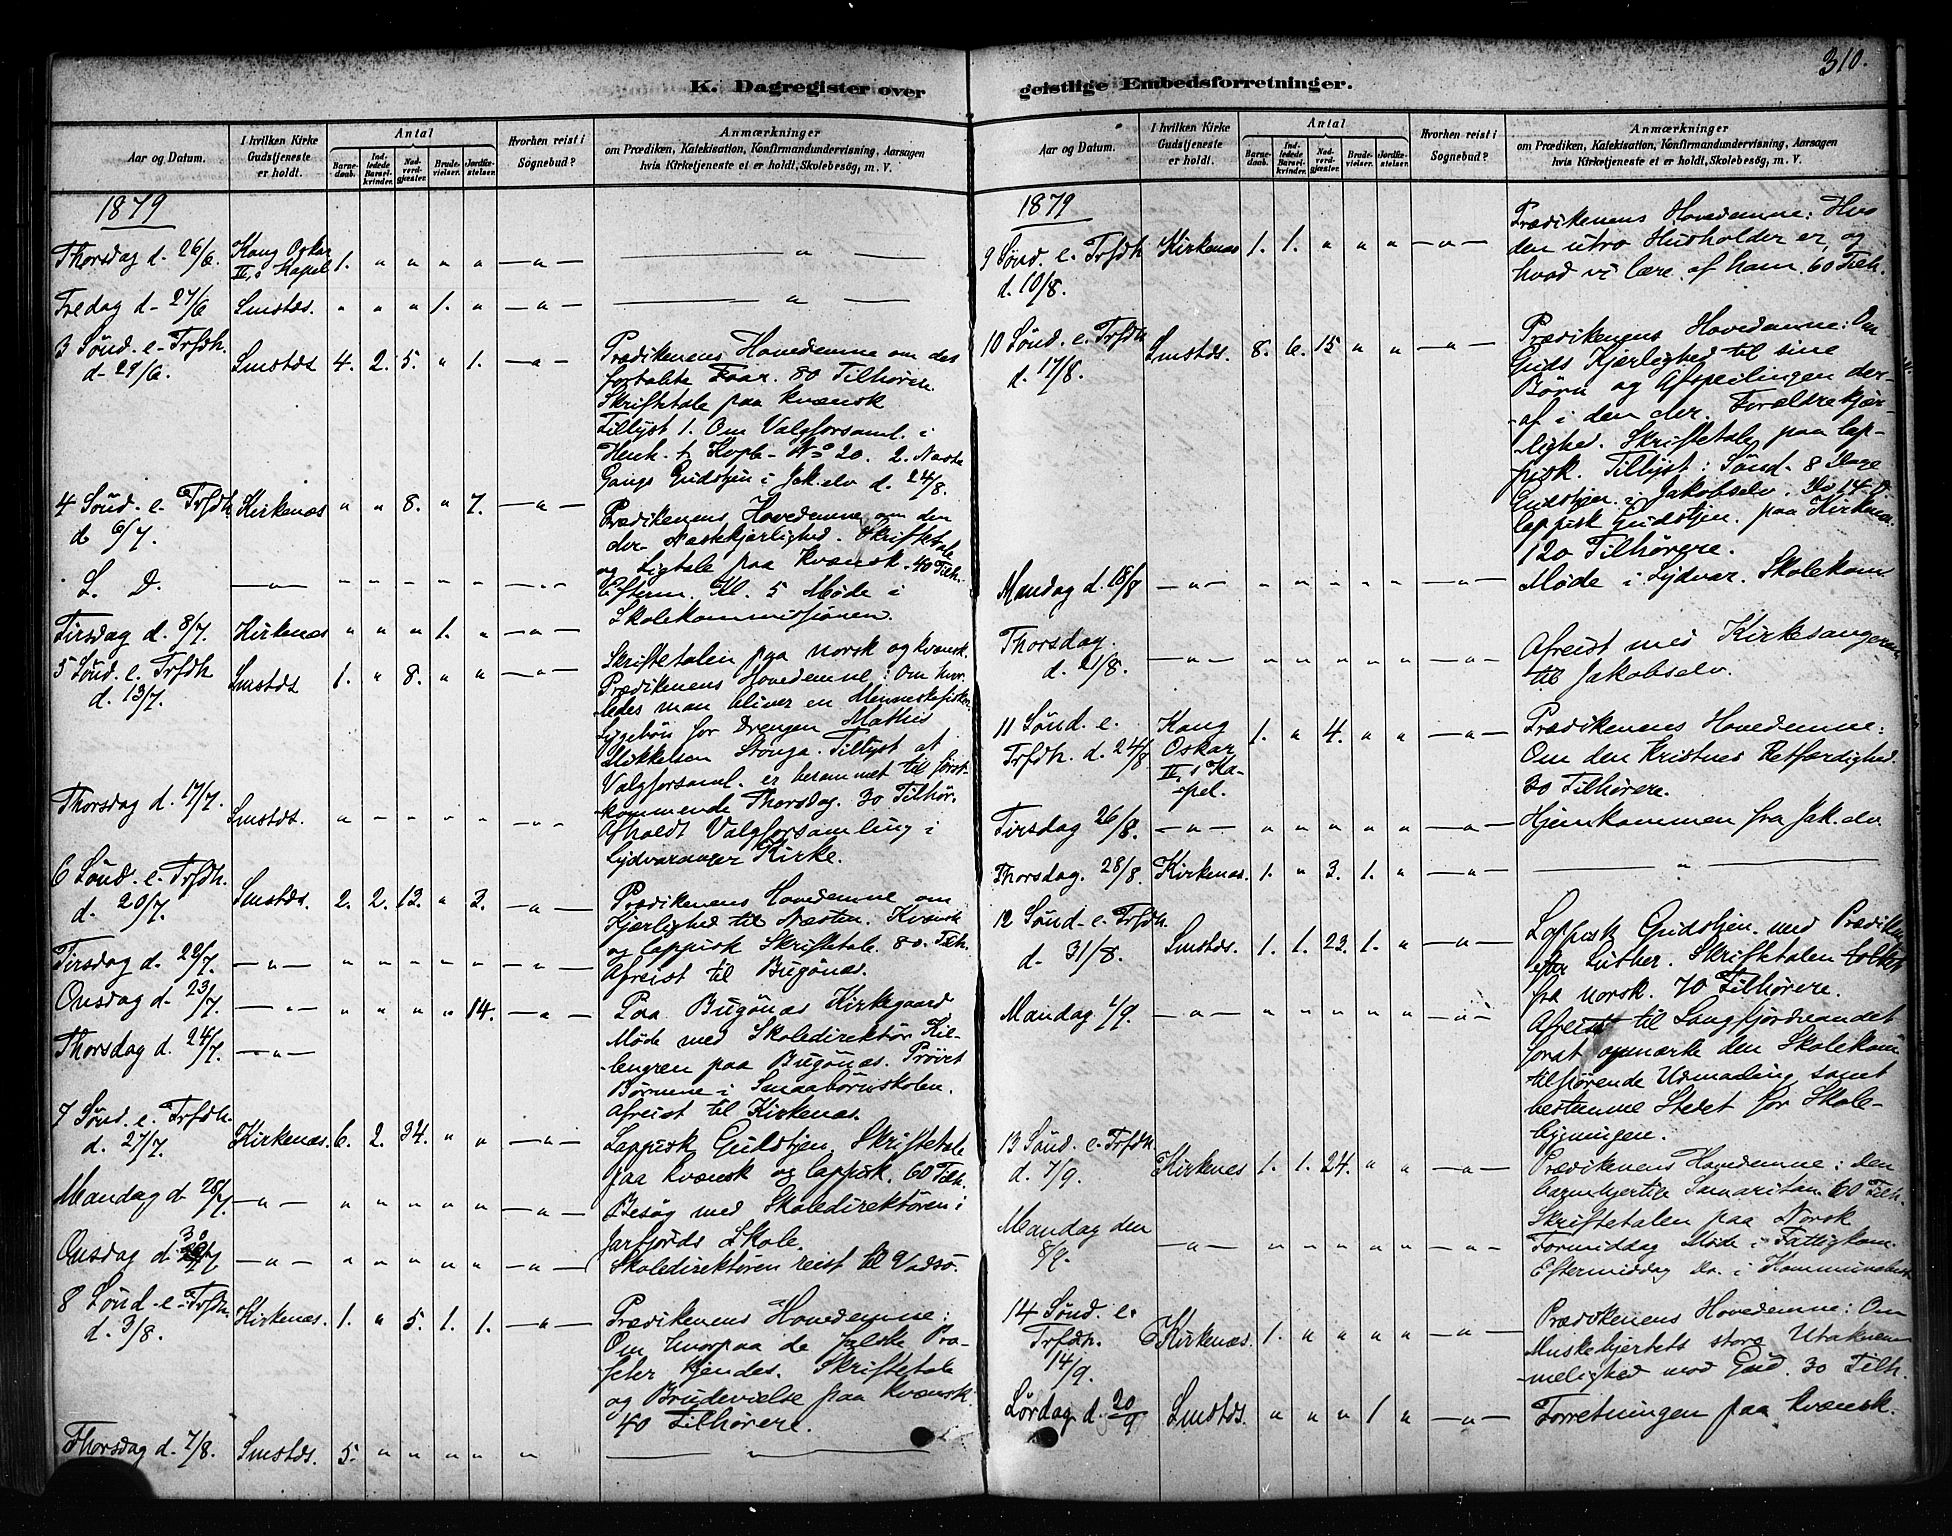 310.
K. Dagregister over
geistlige Embedsforretninger.
Aar og Datum.
I hvilken Kirke Gudstjeneste er holdt.
Antal
Barne-daab.
Ind-ledede Barsel-kvinder.
Nad-verd-gjæster.
Brude-vielser.
Jordfæ-stelser.
Hvorhen reist i Sognebud?
Anmærkninger
om Prædiken, Katekisation, Konfirmandundervisning, Aarsagen
hvis Kirketjeneste et er holdt, Skolebesög, m. V.
1879
Thorsdag d. 26/6 Kong Oskar II,s Kapel 1. " " " " —"— — " —
Fredag d. 27/6 Smstds. " " " 1. " —"— — " —
3 Sönd. e. Trfdh. d. 29/6. Smstds 4. 2. 5. " 1. —"— Prædikenens Hovedemne om det
fortabte Faar. 80 Tilhörere.
Skriftetale paa kvænsk
Tillyst 1. Om Valgforsaml. i
Henh. t. Kopb. No 20. 2. Næste
Gangs Gudstjen i Jak.elv d. 24/8.
4 Sönd. e. Trfdh. d 6/7. Kirkenæs " " 8. " 7. —"— Prædikenens Hovedemne om den
Næstekjærlighed. Skriftetale
og Ligtale paa kvænsk. 40 Tilh.
S. D. —"— " " " " " —"— Efterm. Kl. 5 Möde i
Skolekommissionen.
Tirsdag d. 8/7. Kirkenæs " " " 1. " —"—
5 Sönd. e. Trfdh d. 13/7. Smstds 1. " 8. " " —"— Skriftetalen paa norsk og kvænsk.
Prædikenens Hovedemne: Om hvor-
ledes man bliver en Menneskefisker.
for Drengen Mathis
Mikkelsen Stonga. Tillyst at
Valgforsaml. er berammet til först-
kommende Thorsdag. 30 Tilhör.
Thorsdag d. 17/7. Smstds. " " " " " —"— Afholdt Valgforsamling i
Sydvaranger Kirke.
6 Sönd. e. Trfdh. d. 20/7. Smstds. 2. 2. 13. " 3. —"— Prædikenens Hovedemne om
Kjærlighed til Næsten. Kvænsk
og lappisk Skriftetale. 80. Tilh.
Tirsdag d. 22/7. —"— " " " " " —"— Afreist til Bugönæs.
Onsdag d. 23/7. —"— " " " " 14. —"— Paa Bugönæs Kirkegaard
Thorsdag d. 24/7. —"— Möde med Skoledirektör Kil-
lengren paa Bugönæs. Prövet
Börnene i Smaabörnskolen.
Afreist til Kirkenæs.
7 Sönd. e. Trfdh. d. 27/7. Kirkenæs. 6. 2. 34. " " —"— Lappisk Gudstjen. Skriftetale
paa kvænsk og lappisk. 60 Tilh.
Mandag d 28/7 —"— " " " " " —"— Besög med Skoledirektören i
Jarfjords Skole.
Onsdag d 30/7 —"— " " " " " —"— Skoledirektören reist til Vadsö.
8 Sönd. e. Trfdh. d. 3/8. Kirkenæs. 1. " 5. 1. 1. —"— Prædikenens Hovedemne:
Om hvorpaa de falske Pro-
feter kjendes. Skriftetale
og Brudevielse paa kvænsk.
40 Tilhörere.
Thorsdag d. 7/8. Smstds. 5. " " " " " — " —
Aar og Datum.
I hvilken Kirke Gudstjeneste er holdt.
Antal
Barne-daab.
Ind-ledede Barsel-kvinder.
Nad-verd-gjæster.
Brude-vielser.
Jordfæ-stelser.
Hvorhen reist i Sognebud?
Anmærkninger
om Prædiken, Katekisation, Konfirmandundervisning, Aarsagen
hvis Kirketjeneste et er holdt, Skolebesög, m. V.
1879
9 Sönd. e. Trfdh d. 10/8. Kirkenæs 1. 1. " " " —"— Prædikenens Hovedemne: Hvo
den utro Husholder er, og
hvad vi lære af ham. 60 Tilh.
10 Sönd. e. Trfdh d. 17/8. Smstds. 8. 6. 15 " " —"— Prædikenens Hovedemne: Om
Guds Kjærlighed til sine
Börn og Afspeilingen der-
af i den Forældrekjær-
lighed. Skriftetale paa lap-
pisk. Tillyst: Sönd. 8 Dage
Gudstjen. i Jakobselv. Do 14 D.
lappisk Gudstjen. paa Kirkenæs.
120 Tilhörere.
Mandag d. 18/8 —"— " " " " " —"— Möde i Sydvar. Skolekom
Thorsdag d. 21/8. —"— " " " " " —"— Afreist med Kirkesangeren
til Jakobselv.
11 Sönd. e. Trfdh. d. 24/8 Kong Oskar II,s Ka-pel. 1. " 4. " " —"— Prædikenens Hovedemne:
Om den Kristnes Retfærdighed.
30 Tilhörere.
Tirsdag 26/8. —"— " " " " " —"— Hjemkommen fra Jak.elv.
Thorsdag. 28/8. Kirkenæs. 1. " 3. 1. " —"— — " —
12 Sönd. e. Trfdh. d. 31/8. Smstds. 1. 1. 23. 1. " —"— Lappisk Gudstjen. med Prædiken
efter Luther. Skriftetalen tolket
fra norsk. 70 Tilhörere.
Mandag 1/9. —"— " " " " " —"— Afreist til Langfjordeandet
for at opmærke den Skolekom
tilhörende Udmading, samt
bestemme Stedet for Skole-
bygningen.
13 Sönd. e. Trfdh d. 7/9. Kirkenæs 1. 1. 24. " " —"— Prædikenens Hovedemne: Den
barmhjertige Samaritan 60 Tilh.
Skriftetalen paa Norsk
Mandag den 8/9. —"— " " " " " —"— Formiddag Möde i Fattigkom.
Eftermiddag Do. i Kommunebest.
14 Sönd. e. Trfdh. 14/9. Kirkenæs. 1. " " " " —"— Prædikenens Hovedemne: Om
Mskehjertets store Utaknem
melighed mod Gud. 30 Tilh.
Lördag d. 20/9 Smstds. " " " 1 " —"— Forretningen paa kvænsk.